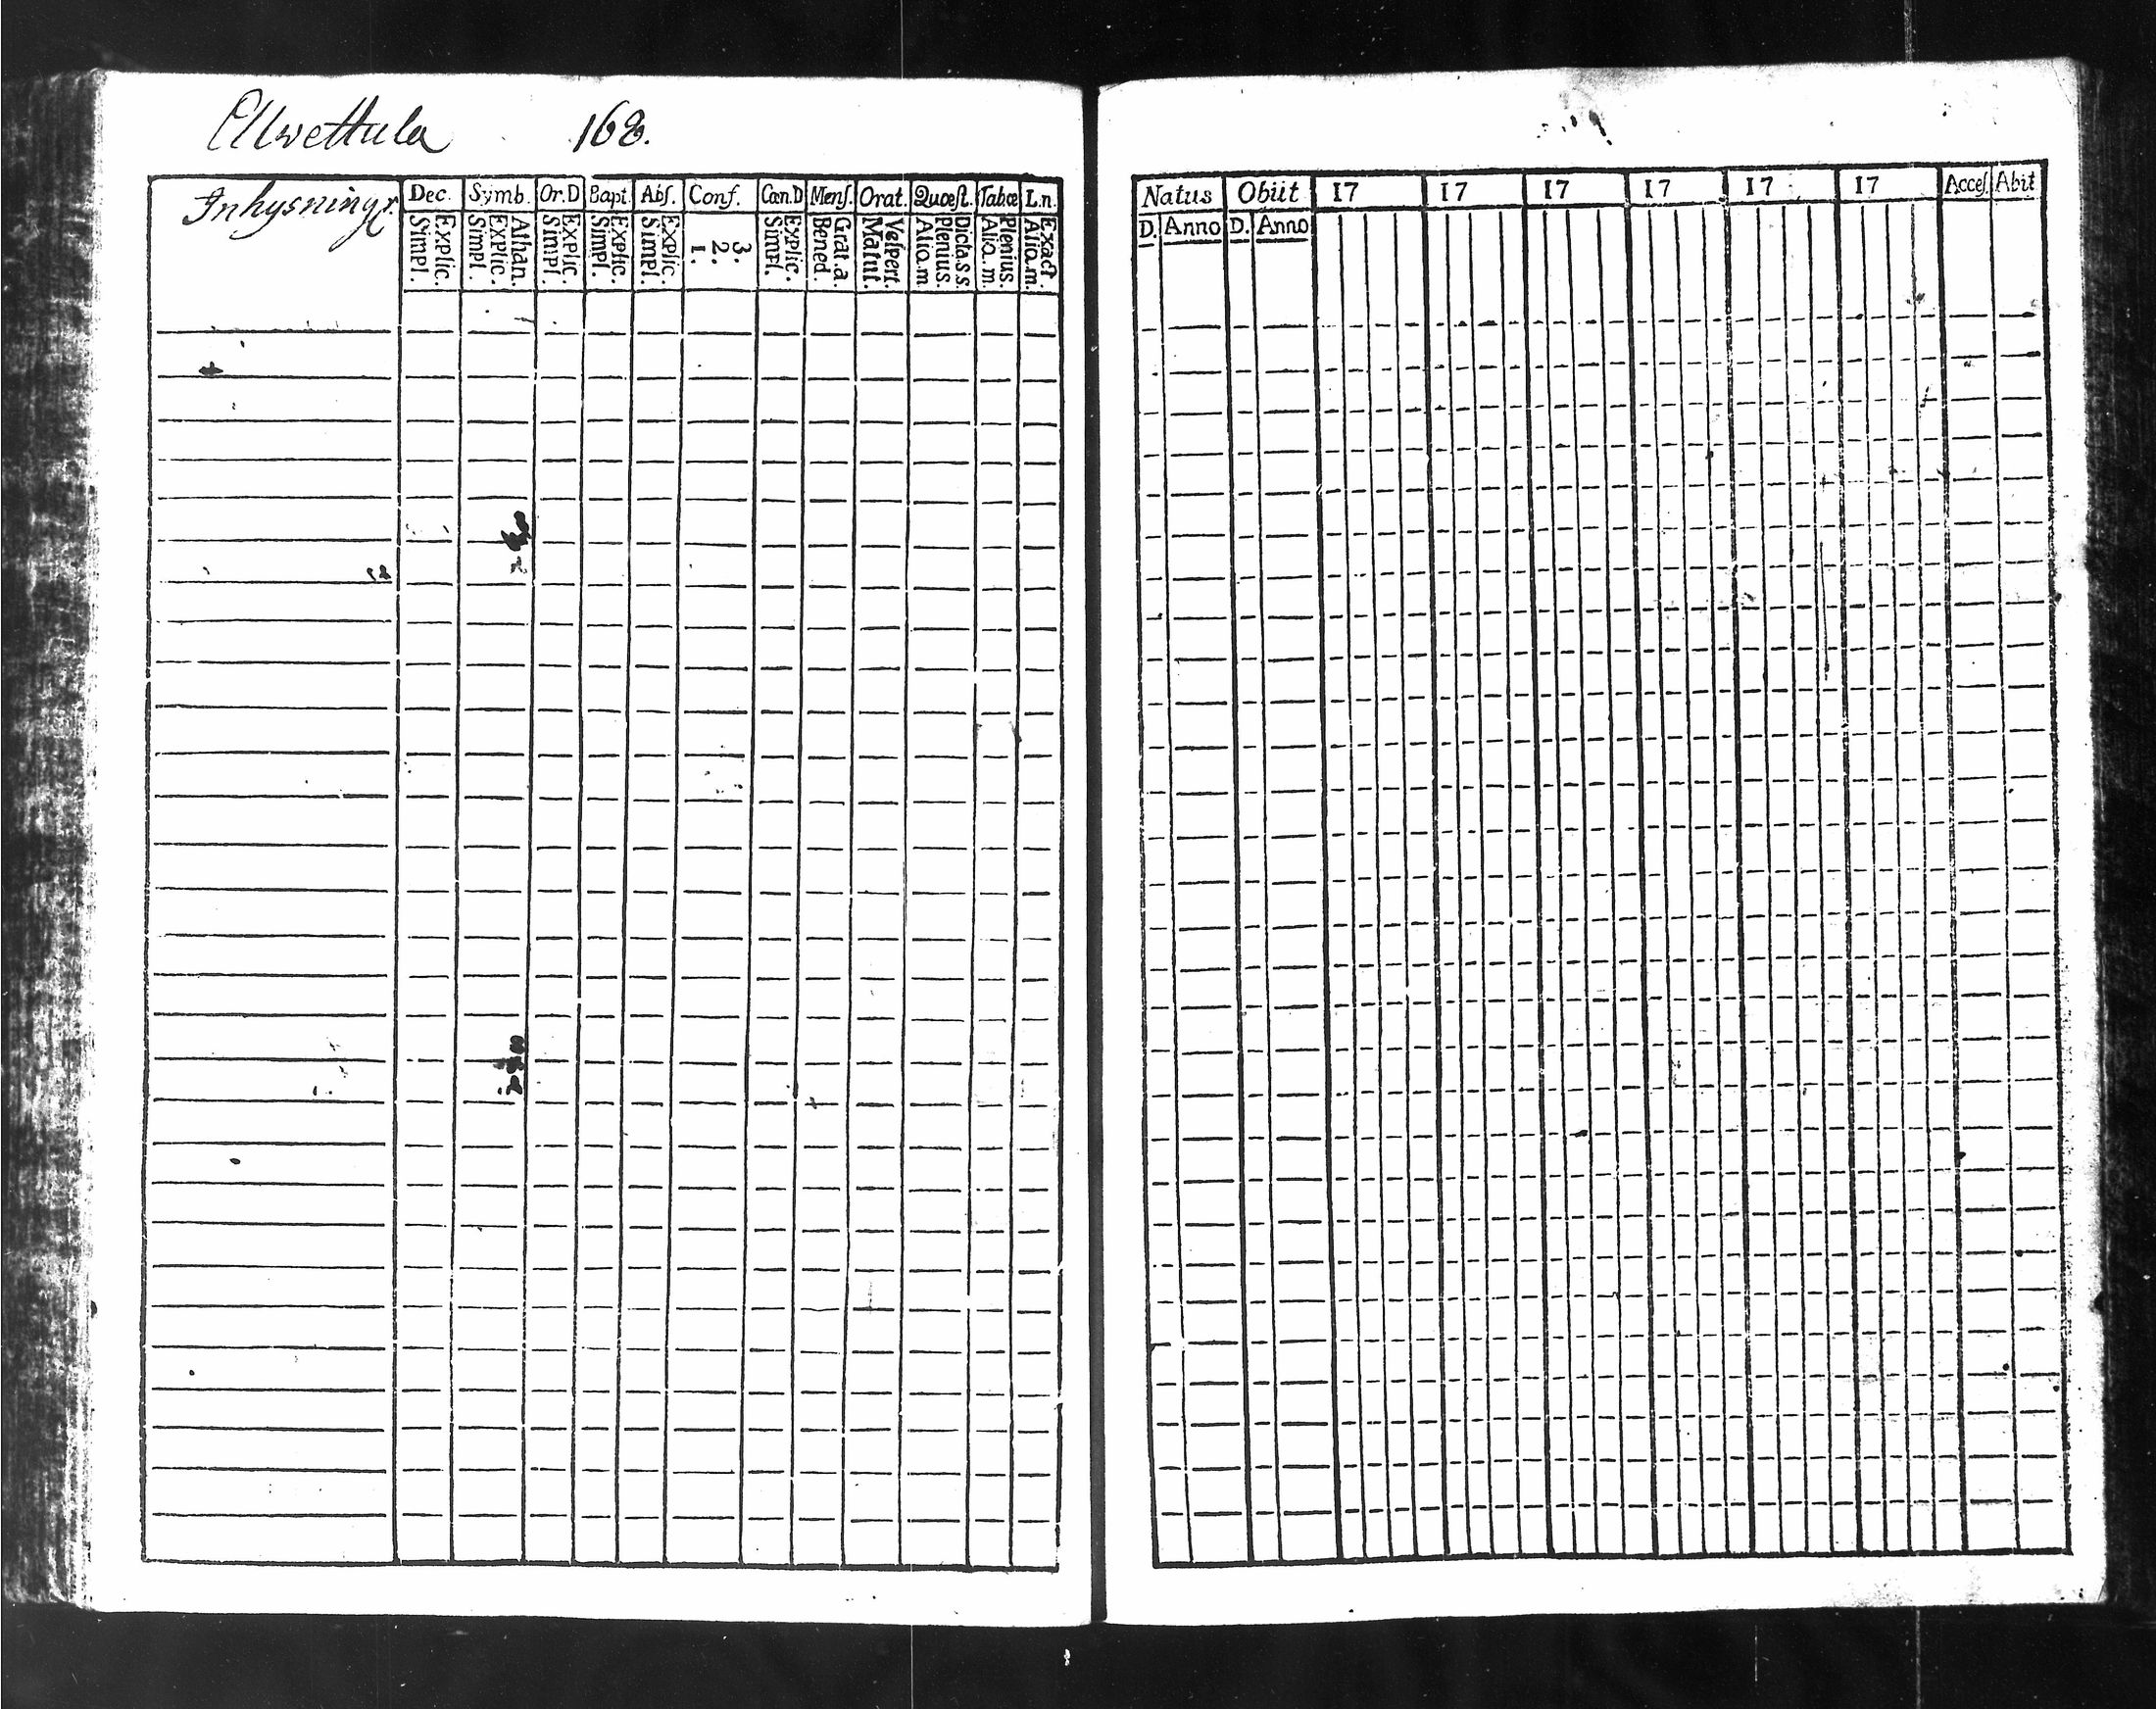 Ollwettula 168.
Inhysningr.
Dec. Symb. Or.D Bapt. Abſ. Conf. Cœn.D Menſ. Orat. Quœſt. Tabœ L.n.
Simpl. Explic. Simpl. Explic. Athan. Simpl. Explic. Simpl. Explic. Simpl. Explic. 1. 2. 3. Simpl. Explic. Bened. Grat.a. Matut. Veſpert. Aliq.m Plenius. Dicta.s.s. Aliq.m. Plenius. Aliq.m. Exact.
Natus Obiit 17 17 17 17 17 17 Acceſ. Abit
D. Anno D. Anno